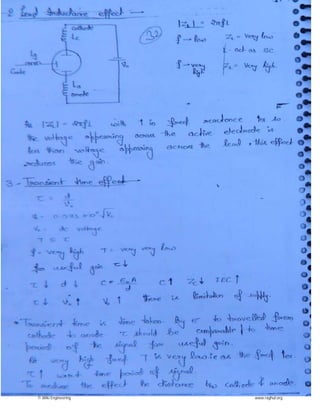 2 Lead Inductance effect →
cathode
Lc
Lg
Grid
Vo
La
anode
|ZL| = 2πfL
f → low ZL → very low
L - act as SC
f → very high ZL → very high
As |ZL| = 2πfL with ↑ in freq reactance so
the voltage appearing across the active electrode is
less than voltage appearing across the load. this effect
reduces the gain.
3 - Transient time effect →
τ = d
V0 - dc voltage
f - very high T - very very low
for useful gain τ↓
τ↓ d↓ C↑ ZC↓ IEC↑
τ↓ V0↑ there is limitation of supply.
• Transient time is time taken by e- to travelled from
cathode to anode τ should be comparable to time
period of the signal for useful gain.
At very high freq T is very low as the freq
τ↑ time period of signal
To reduce the effect the distance b/w cathode & anode
© Blitz Engineering
www.raghul.org